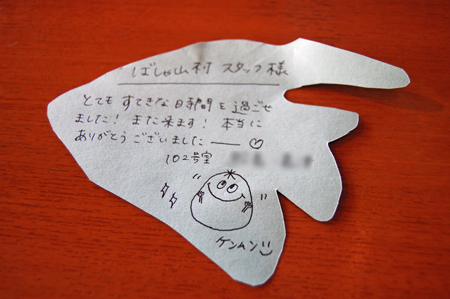 ばしゃ山村 スタッフ様
とても すてきな時間を過ごせ
ました! また来ます! 本当に
ありがとう ございました――♡
102号室
ケンムン